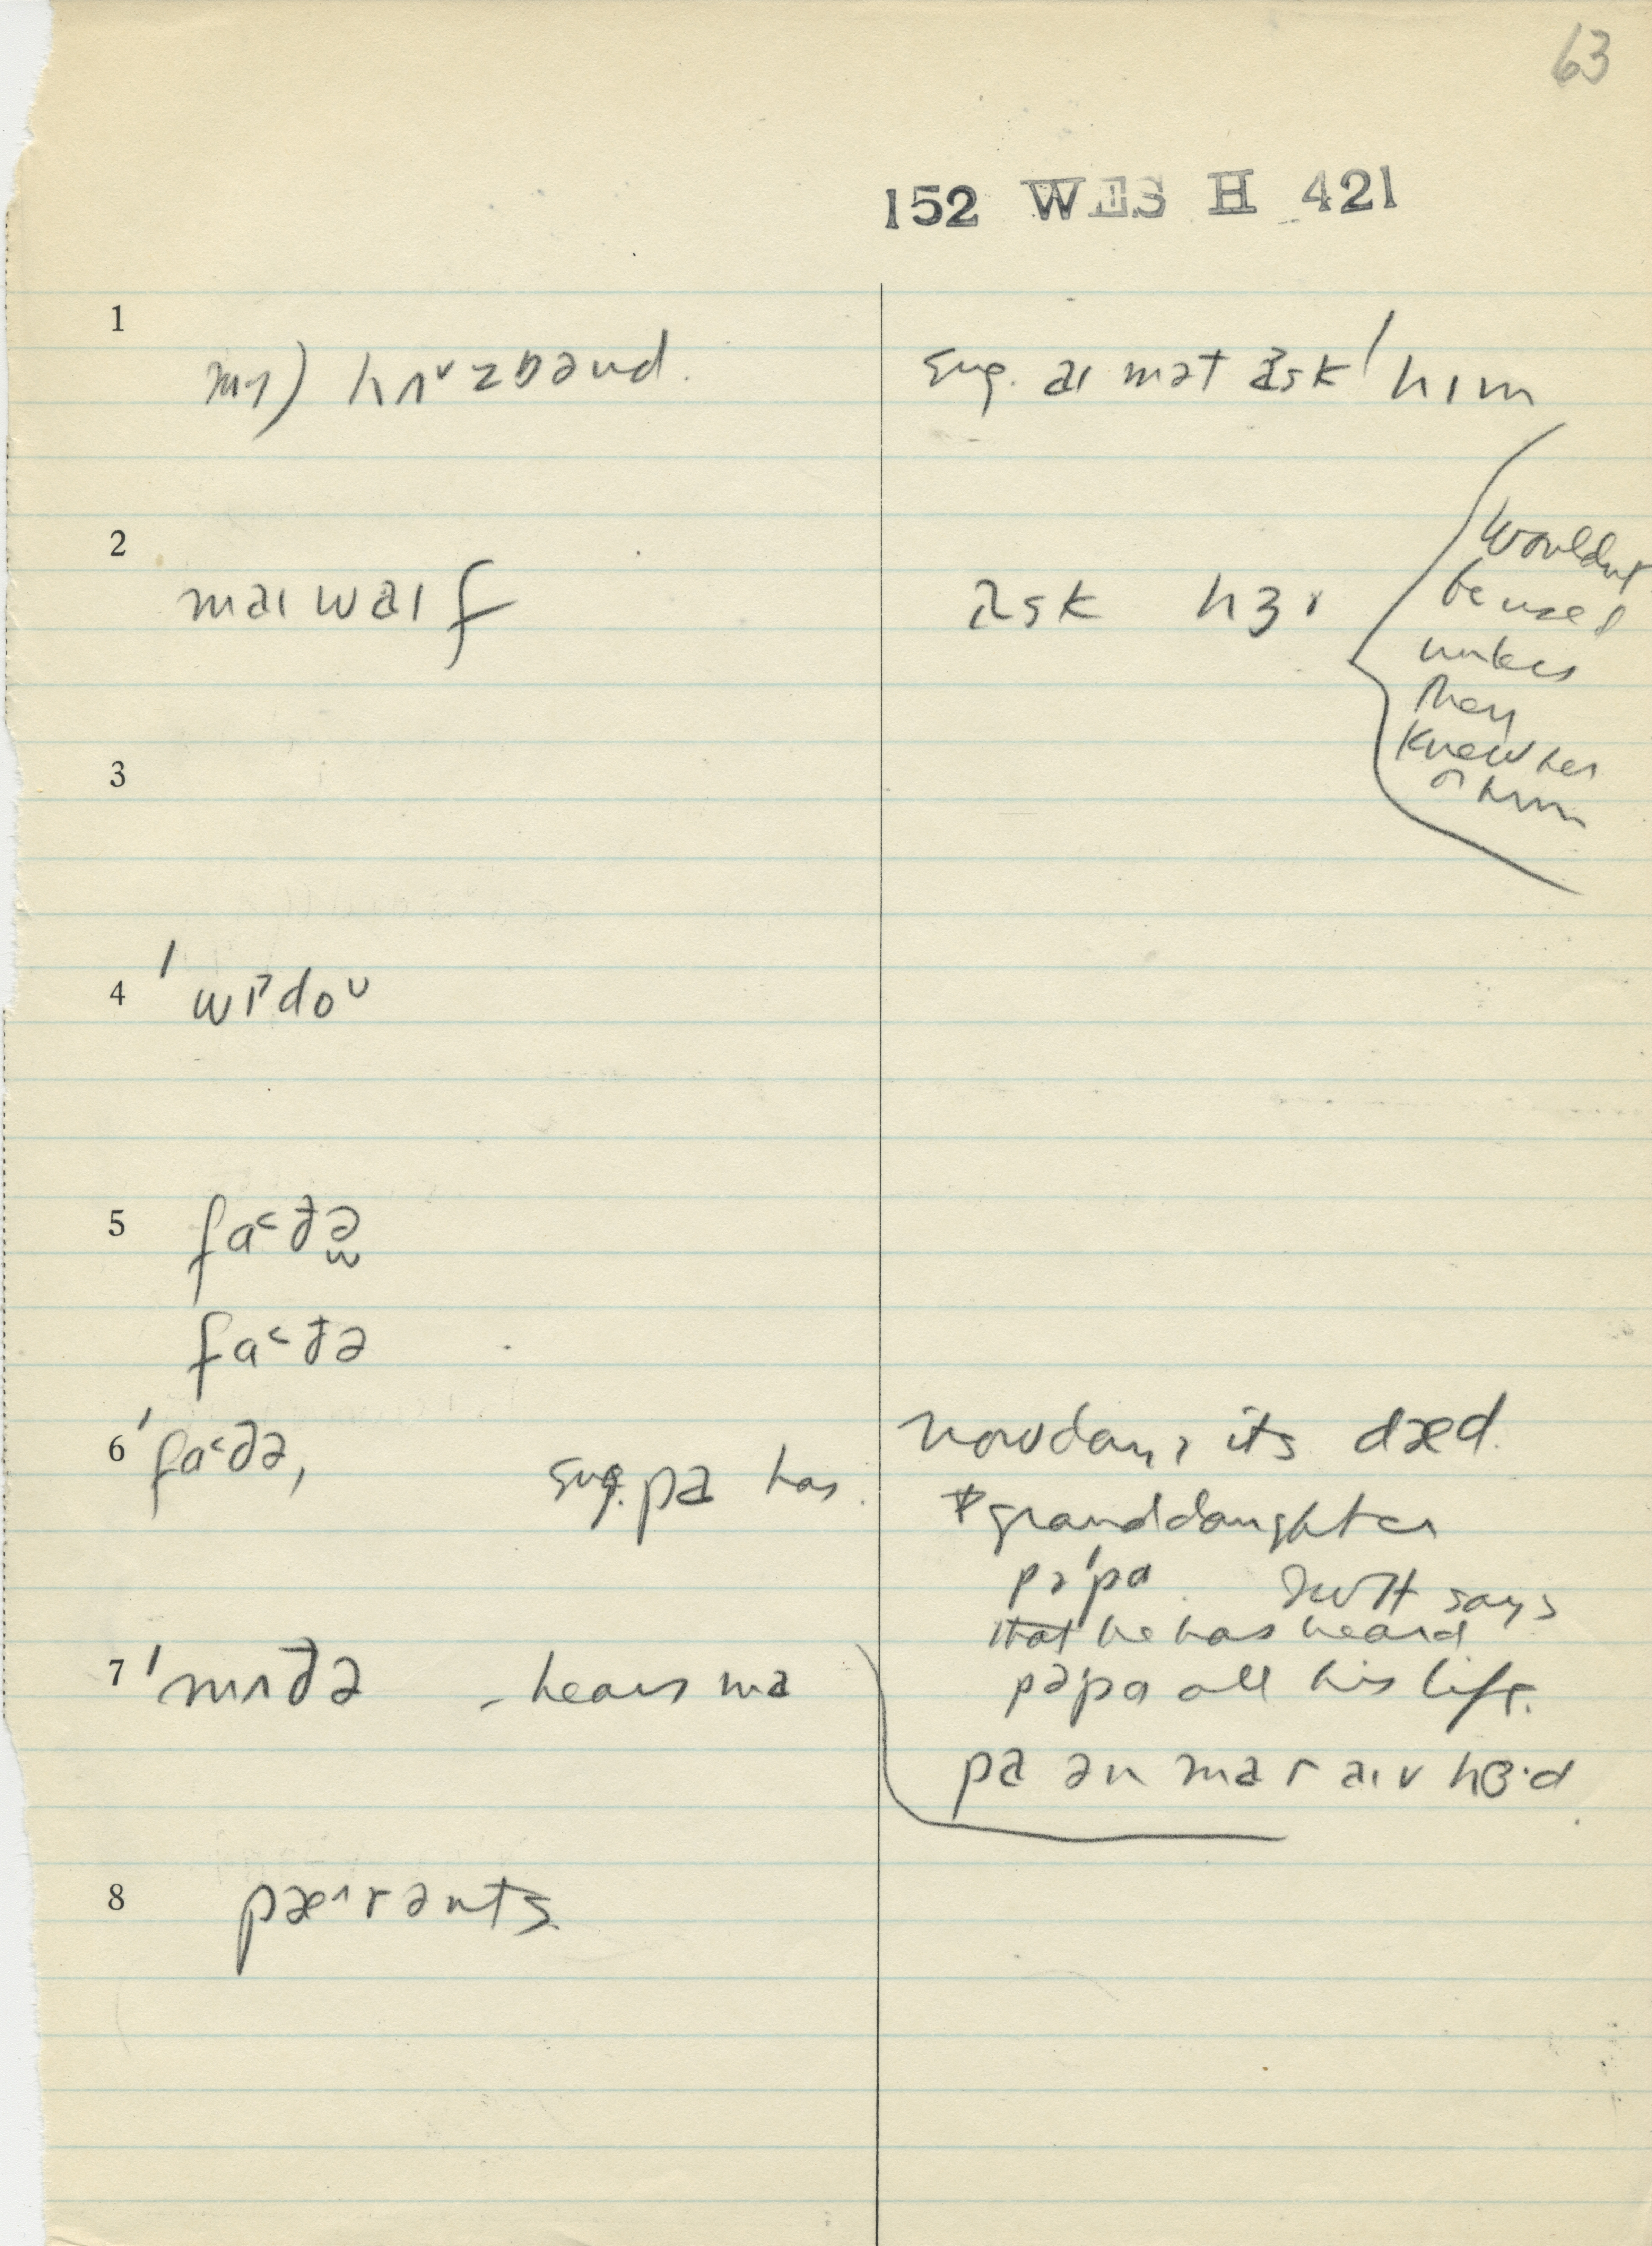 63
152 WES H 421
1
mɪ) hʌᵛzbənd.
sug. aɪ mətask 'hɪm
2
maɪ waɪf
ask hɜr
Wouldnt
be used
unless
they
knew her
or him
3
4 'wɪ^doᵛ
5 fa˂ðə̫
fa˂ðə
6 'fa˂ðə,
sug. pa has.
nowdays its dæd.
granddaughter
pə'pa. says
that he has heard
pə'pa all his life.
7 'mʌðə - hears ma
pa ən ma r aɪv hɜ·d
8 pæ^rənts.